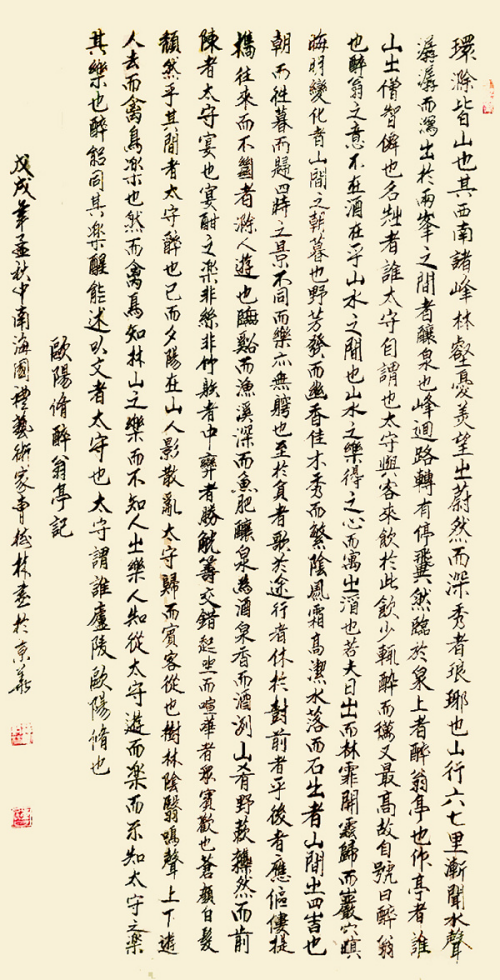 環滁皆山也其西南諸峰林壑憂美望出蔚然而深秀者琅琊也山行六七里漸聞水聲
潺潺而瀉出於兩峯之間者釀泉也峰迴路轉有停翼然臨於泉上者醉翁亭也作亭者誰
山出僧智僊也名之者誰太守自謂也太守與客來飲於此飲少輒醉而年又最高故自號曰醉翁
也醉翁之意不在酒在乎山水之間也山水之樂得之心而寓出酒也若夫日出而林霏開雲歸而巖穴暝
晦明變化者山間之朝暮也野芳發而幽香佳木秀而繁陰風霜高潔水落而石出者山間出四時也
朝而往暮而歸四時之景不同而樂亦無窮也至於負者歌於途行者休於樹前者乎後者應傴僂提
攜往來而不絕者滁人遊也臨谿而漁溪深而魚肥釀泉為酒泉香而酒洌山肴野蔌雜然而前
陳者太守宴也宴酣之樂非絲非竹射者中弈者勝觥籌交錯起坐而喧華者眾賓歡也蒼顏白髮
頹然乎其間者太守醉也已而夕陽在山人影散亂太守歸而賓客從也樹林陰翳鳴聲上下遊
人去而禽鳥樂也然而禽鳥知林山之樂而不知人出樂人知從太守遊而樂而不知太守之樂
其樂也醉能同其樂醒能述以文者太守也太守謂誰廬陵歐陽脩也
歐陽脩醉翁亭記
戊戌年孟秋中南海國禮藝術家曹 林書於京